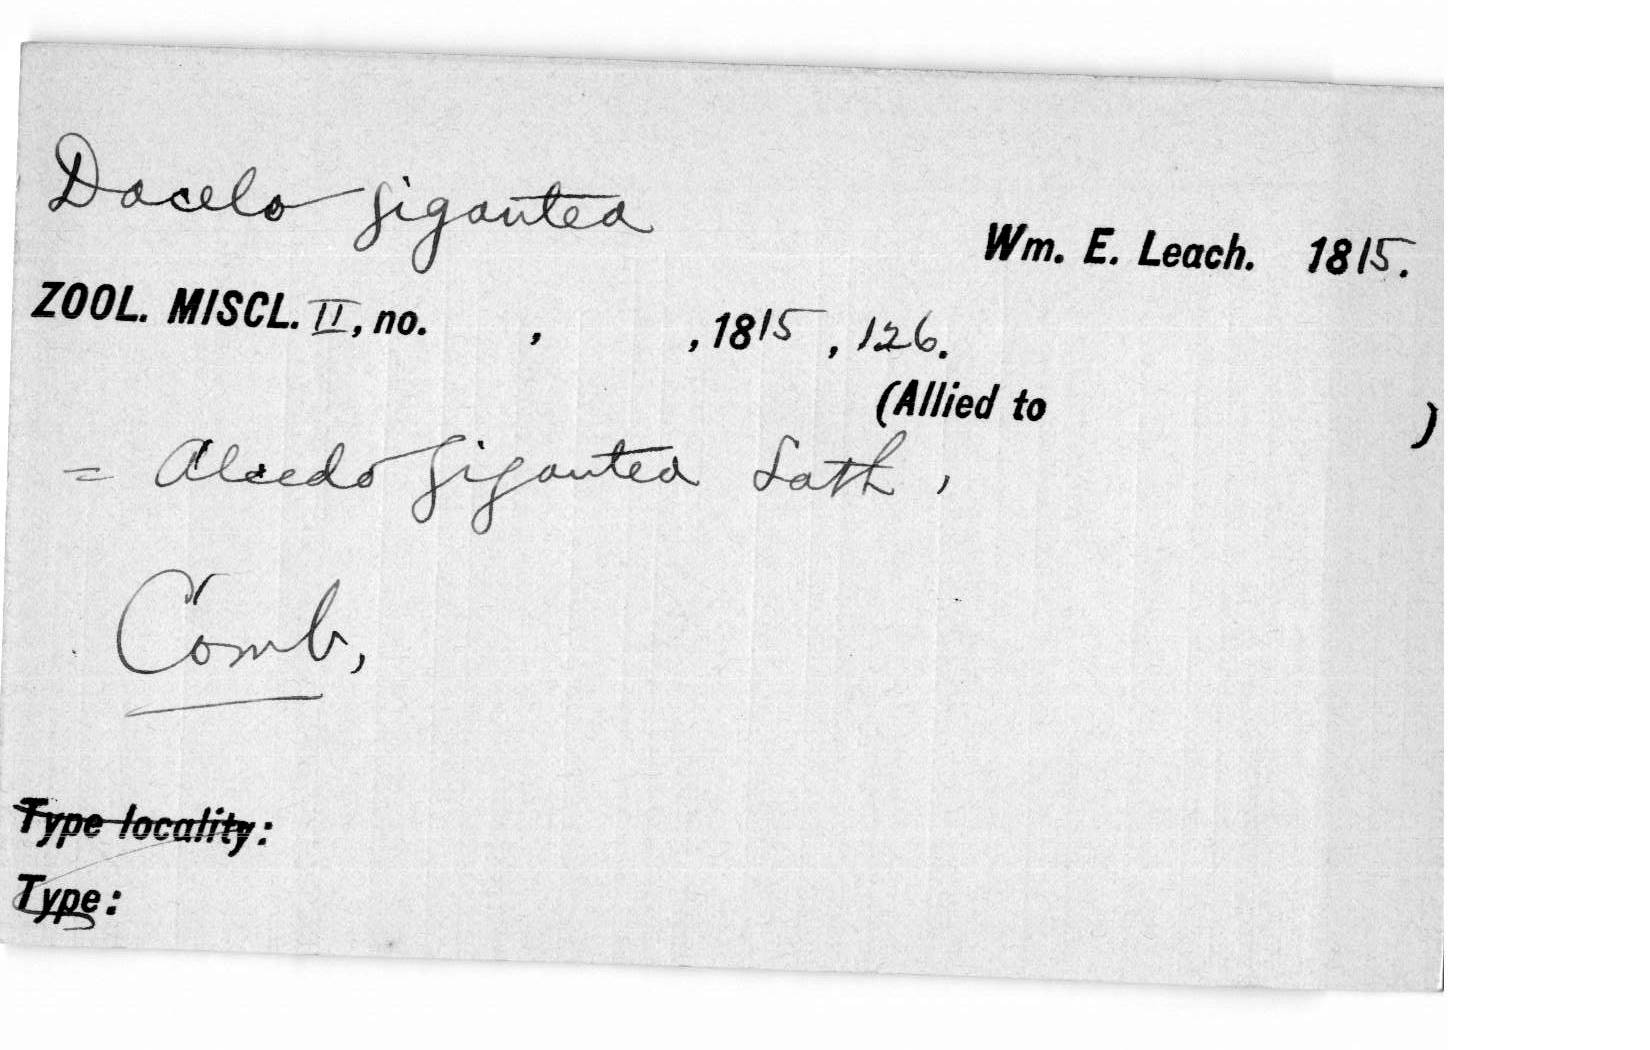 Dacelo gigantea
Wm. E. Leach. 1815.
ZOOL. MISCL. II, no. , , 1815, 126.
(Allied to )
= Alcedo gigantea Lath,
Comb,
Type locality:
Type: